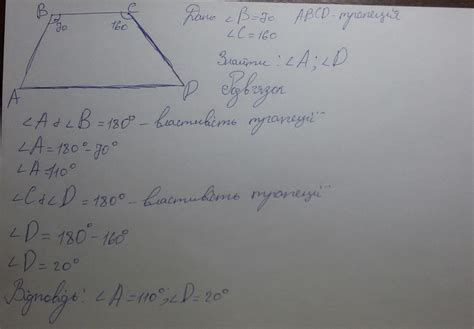 B C
70 160
A D
Дано ∠B=70 ABCD-трапеція
∠C=160
Знайти: ∠A; ∠D
Розв'язок
∠A і ∠B = 180° - властивість трапеції
∠A = 180° - 70°
∠A = 110°
∠C і ∠D = 180° - властивість трапеції
∠D = 180° - 160°
∠D = 20°
Відповідь: ∠A = 110°; ∠D = 20°